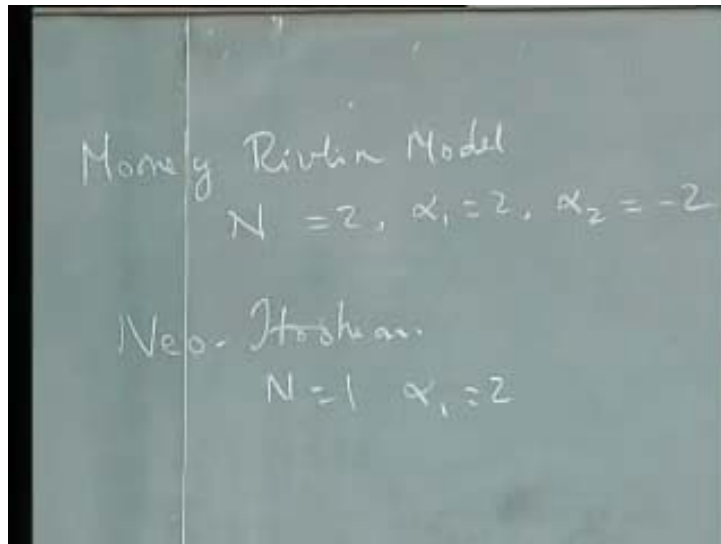 Mooney Rivlin Model
N = 2, α₁ = 2, α₂ = -2
Neo-Hookean.
N = 1 α₁ = 2